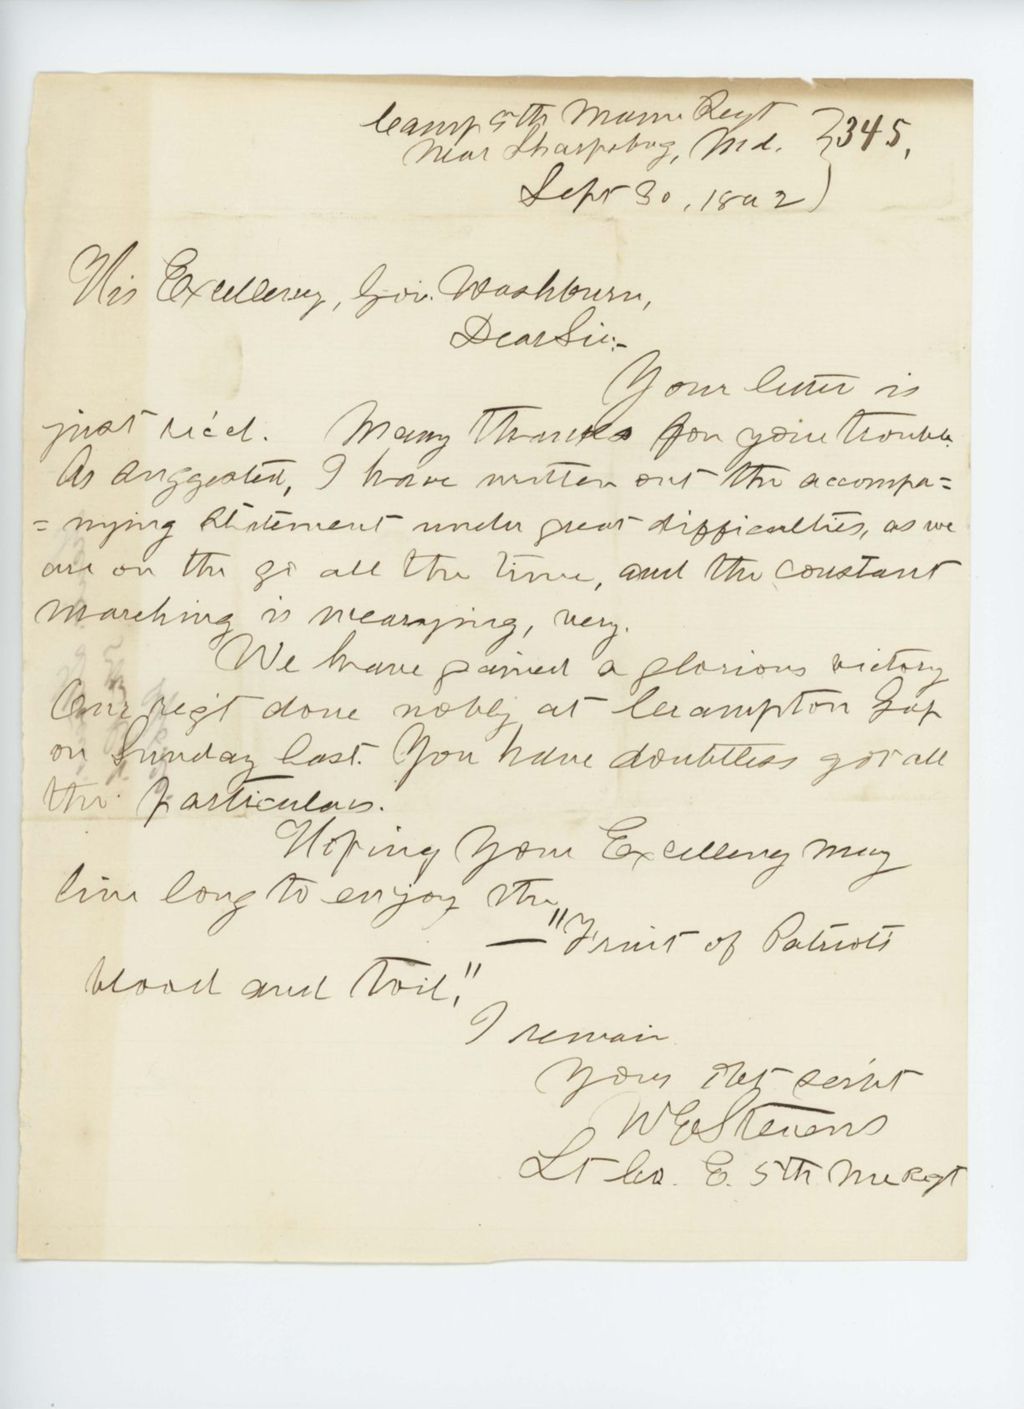 Camp 5th Maine Regt
Near Sharpsburg, Md.
345,
Sept 30, 1862
His Excellency, Gov. Washburn,
Dear Sir:-
Your letter is
just rec'd. Many thanks for your trouble.
As suggested, I have written out the accompa=
=nying statement under great difficulties, as we
are on the go all the time, and the constant
marching is wearying, very.
We have gained a glorious victory
Our regt done nobly at Crampton Gap
on Sunday last. You have doubtless got all
the particulars.
Hoping Your Excellency may
live long to enjoy the
— "Fruit of Patriots
blood and toil,"
I remain
Your Obt servt
W E Stevens
Lt Co. E. 5th Me Regt